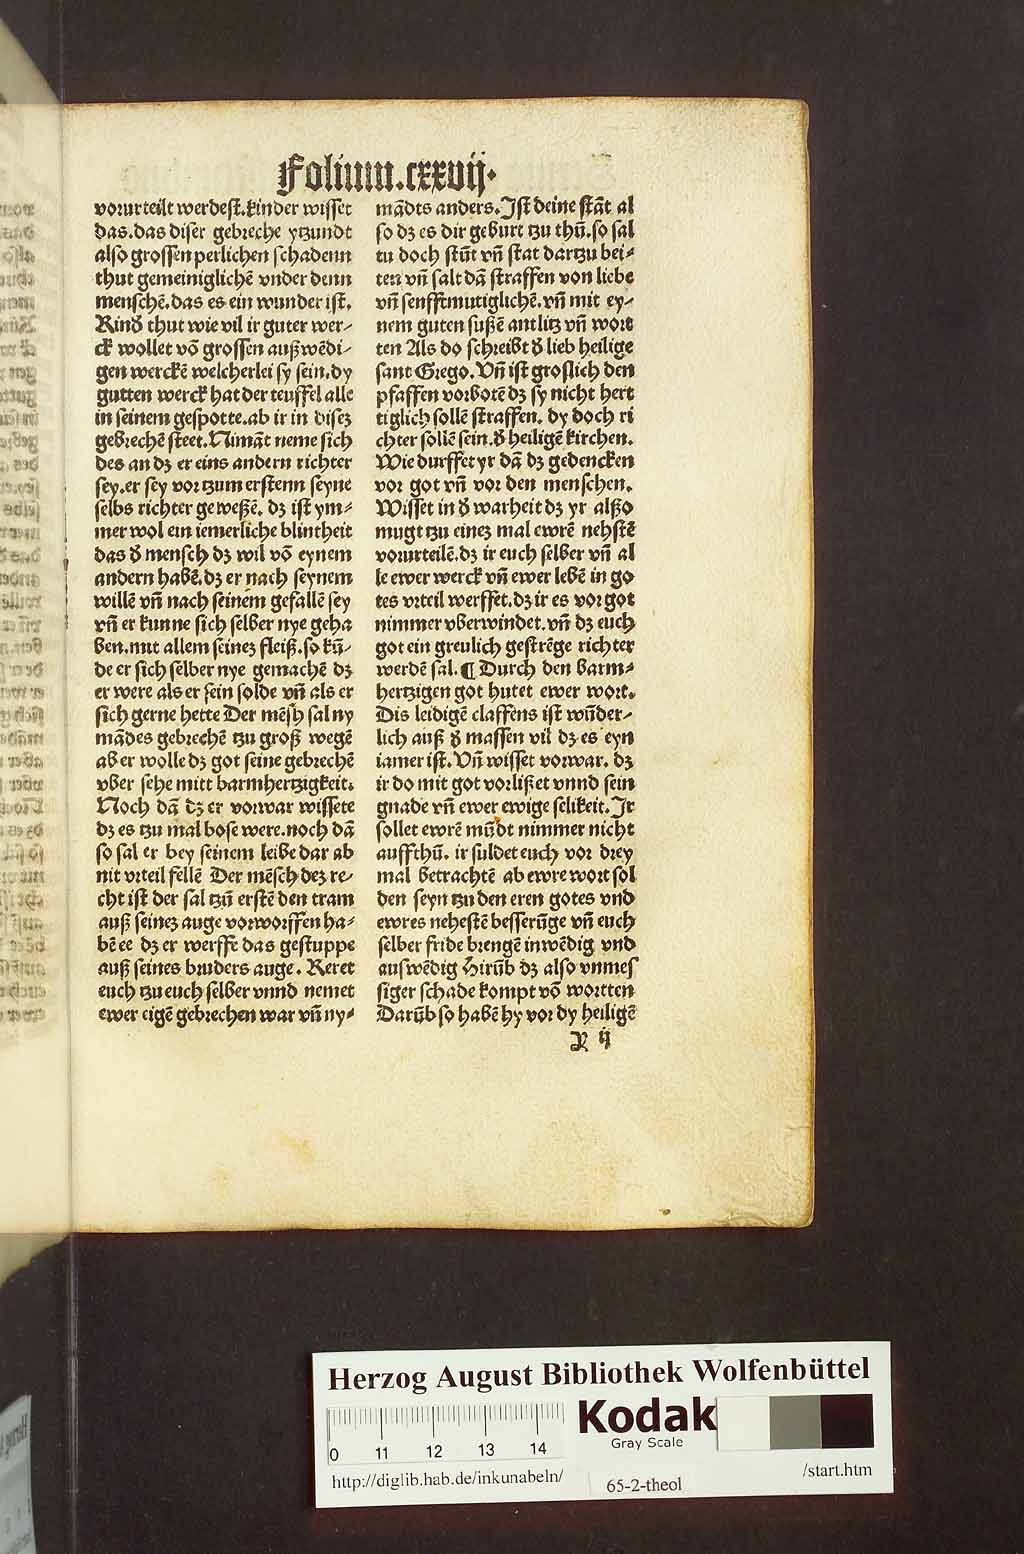 Folium.cxxvij.
vorurteilt werdest.kinder wisset
das.das diser gebreche ytzundt
also grossen perlichen schadenn
thut gemeiniglichē vnder denn
menschē.das es ein wunder ist.
Kinď thut wie vil ir guter wer⸗
ck wollet vō grossen außwēdi⸗
gen werckē welcherlei sy sein.dy
gutten werck hat der teuffel alle
in seinem gespotte.ab ir in disez
gebrechē steet.Nimāt neme sich
des an dz er eins andern richter
sey.er sey vor tzum erstenn seyne
selbs richter geweßē. dz ist ym⸗
mer wol ein iemerliche blintheit
das ď mensch dz wil vō eynem
andern habē.dz er nach seynem
willē vn̄ nach seinem gefallē sey
vn̄ er kunne sich selber nye geha
ben.mit allem seinez fleiß.so kū⸗
de er sich selber nye gemachē dz
er were als er sein solde vn̄ als er
sich gerne hette Der mēsh sal ny
mādes gebrechē tzu groß wegē
ab er wolle dz got seine gebrechē
vber sehe mitt barmhertzigkeit.
Noch dā dz er vorwar wissete
dz es tzu mal bose were.noch dā
so sal er bey seinem leibe dar ab
nit vrteil fellē Der mēsch dez re⸗
cht ist der sal tzū erstē den tram
auß seinez auge vorworffen ha⸗
bē ee dz er werffe das gestuppe
auß seines bruders auge. Keret
euch tzu euch selber vnnd nemet
ewer eigē gebrechen war vn̄ ny⸗
mādts anders.Ist deine stāt al
so dz es dir geburt tzu thū.so sal
tu doch stūt vn̄ stat dartzu bei⸗
ten vn̄ salt dā straffen von liebe
vn̄ senfftmutiglichē.vn̄ mit ey⸗
nem guten sußē antlitz vn̄ wort
ten Als do schreibt ď lieb heilige
sant Grego.Vn̄ ist groslich den
pfaffen vorbotē dz sy nicht hert
tiglich sollē straffen. dy doch ri
chter sollē sein.ď heiligē kirchen.
Wie durffet yr dā dz gedencken
vor got vn̄ vor den menschen.
Wisset in ď warheit dz yr alßo
mugt tzu einez mal ewrē nehstē
vorurteilē.dz ir euch selber vn̄ al
le ewer werck vn̄ ewer lebē in go
tes vrteil werffet.dz ir es vor got
nimmer vberwindet.vn̄ dz euch
got ein greulich gestrēge richter
werdē sal.¶ Durch den barm⸗
hertzigen got hutet ewer wort.
Dis leidigē claffens ist wūder⸗
lich auß ď massen vil dz es eyn
iamer ist.Vn̄ wisset vorwar. dz
ir do mit got vorlißet vnnd sein
gnade vn̄ ewer ewige selikeit.Ir
sollet ewrē mūdt nimmer nicht
auffthū. ir suldet euch vor drey
mal betrachtē ab ewre wort sol
den seyn tzu den eren gotes vnd
ewres nehestē besserūge vn̄ euch
selber fride brengē inwēdig vnd
auswēdig Hirūb dz also vnmes
siger schade kompt vō wortten
Darūb so habē hy vor dy heiligē
R ij
Herzog August Bibliothek Wolfenbüttel
Kodak
Gray Scale
0 11 12 13 14
http://diglib.hab.de/inkunabeln/
65-2-theol
/start.htm